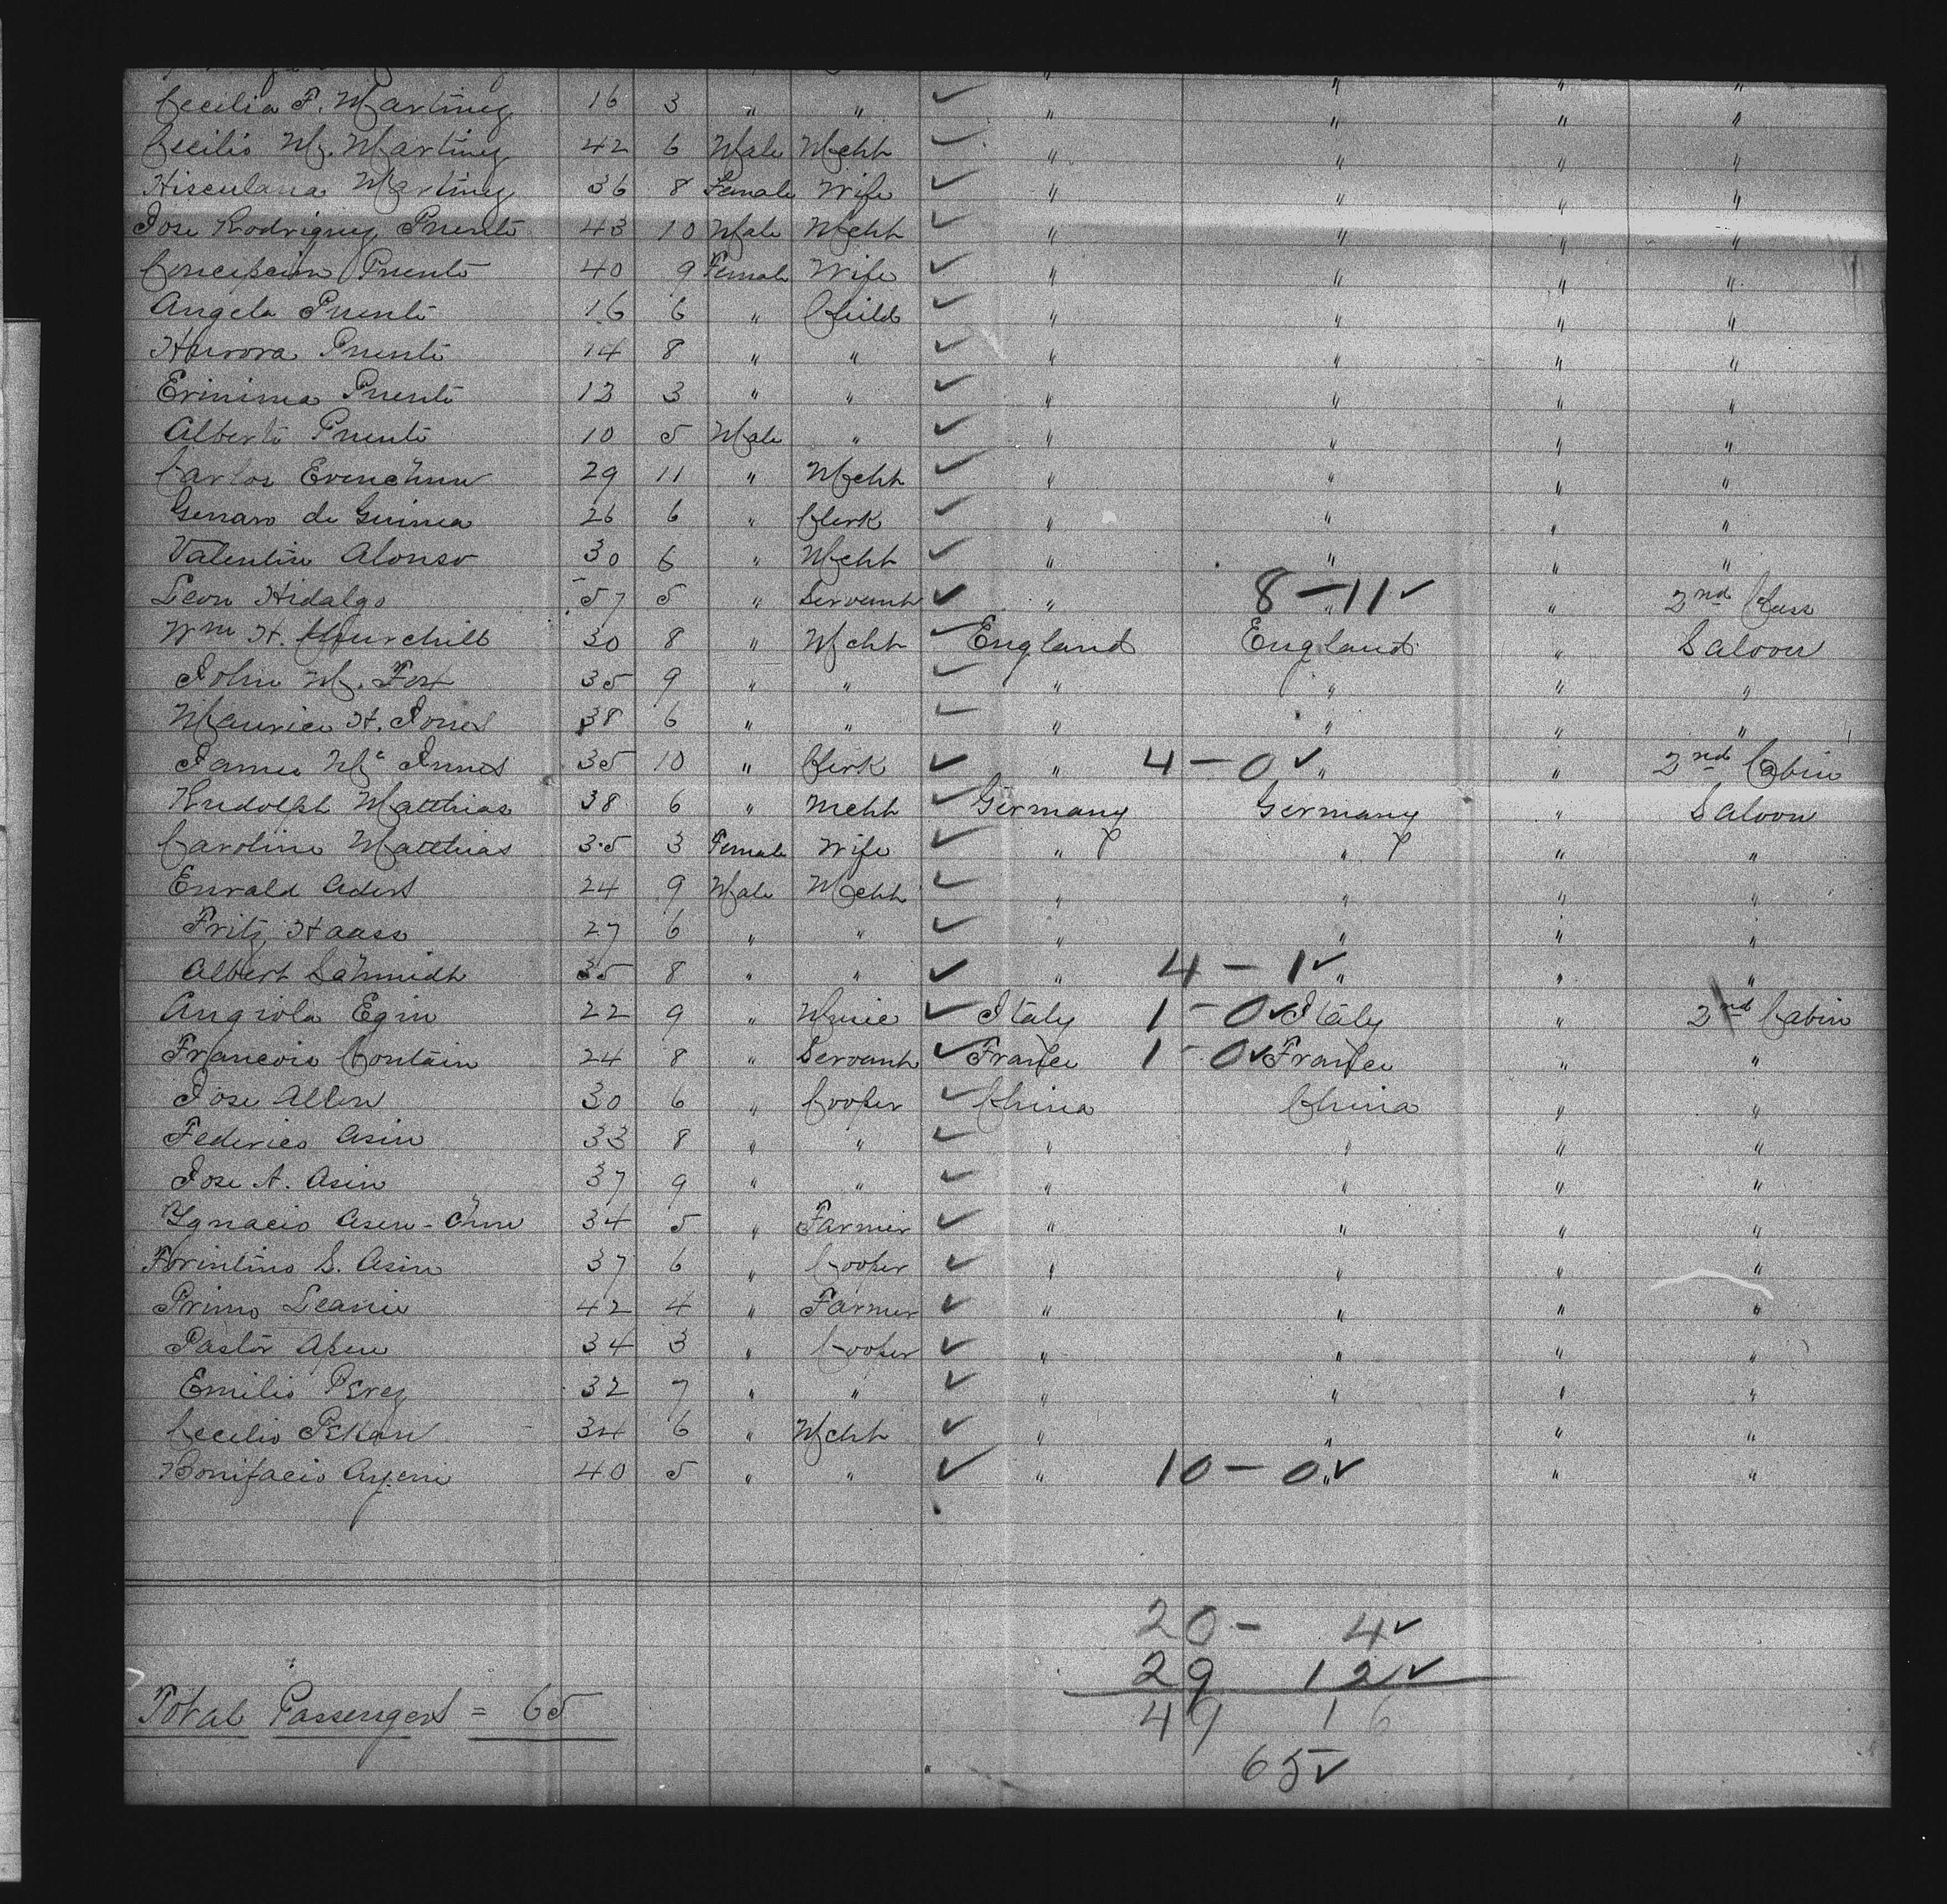 Cecilia F. Martinez 16 3 " " ✓ " " " "
Cecilio M. Martinez 42 6 Male Mcht ✓ " " " "
Martinez 36 8 Female Wife ✓ " " " "
Jose Rodriguez Puente 43 10 Male Mcht ✓ " " " "
Concepcion Puente 40 9 Female Wife ✓ " " " "
Angela Puente 16 6 " Child ✓ " " " "
Aurora Puente 14 8 " " ✓ " " " "
Puente 12 3 " " ✓ " " " "
Alberto Puente 10 5 Male " ✓ " " " "
Carlos 29 11 " Mcht ✓ " " " "
Genaro de Guinea 26 6 " Clerk ✓ " " " "
Valentin Alonso 30 6 " Mcht ✓ " " " "
Leon Hidalgo 57 5 " Servant ✓ " 8 - 11 ✓ " " 2nd Class
Wm H. Churchill 30 8 " Mcht ✓ England England " Saloon
John M. Fox 35 9 " " ✓ " " " "
Maurice H. Jones 38 6 " " ✓ " " " "
James Mc Innes 35 10 " Clerk ✓ " 4 - 0 ✓ " " 2nd Cabin
Rudolph Matthias 38 6 " Mcht ✓ Germany Germany " Saloon
Caroline Matthias 35 3 Female Wife ✓ " " " "
Aders 24 9 Male Mcht ✓ " " " "
Fritz Haass 27 6 " " ✓ " " " "
Albert Schmidt 35 8 " " ✓ " 4 - 1 ✓ " " "
Angiola Egin 22 9 " ✓ Italy 1 - 0 ✓ Italy " 2nd Cabin
Francois Contain 24 8 " Servant ✓ France 1 - 0 ✓ France " "
Jose Allen 30 6 " Cooper ✓ China China " "
Federico Asin 33 8 " " ✓ " " " "
Jose A. Asin 37 9 " " ✓ " " " "
Ygnacio 34 5 " Farmer ✓ " " " "
S. Asin 37 6 " Cooper ✓ " " " "
Primo 42 4 " Farmer ✓ " " " "
Pastor 34 3 " Cooper ✓ " " " "
Emilio Perez 32 7 " " ✓ " " " "
Cecilio 34 6 " Mcht ✓ " " " "
Bonifacio 40 5 " " ✓ " 10 - 0 ✓ " " "
20 - 4 ✓
29 12 ✓
Total Passengers = 65 49 16
65 ✓